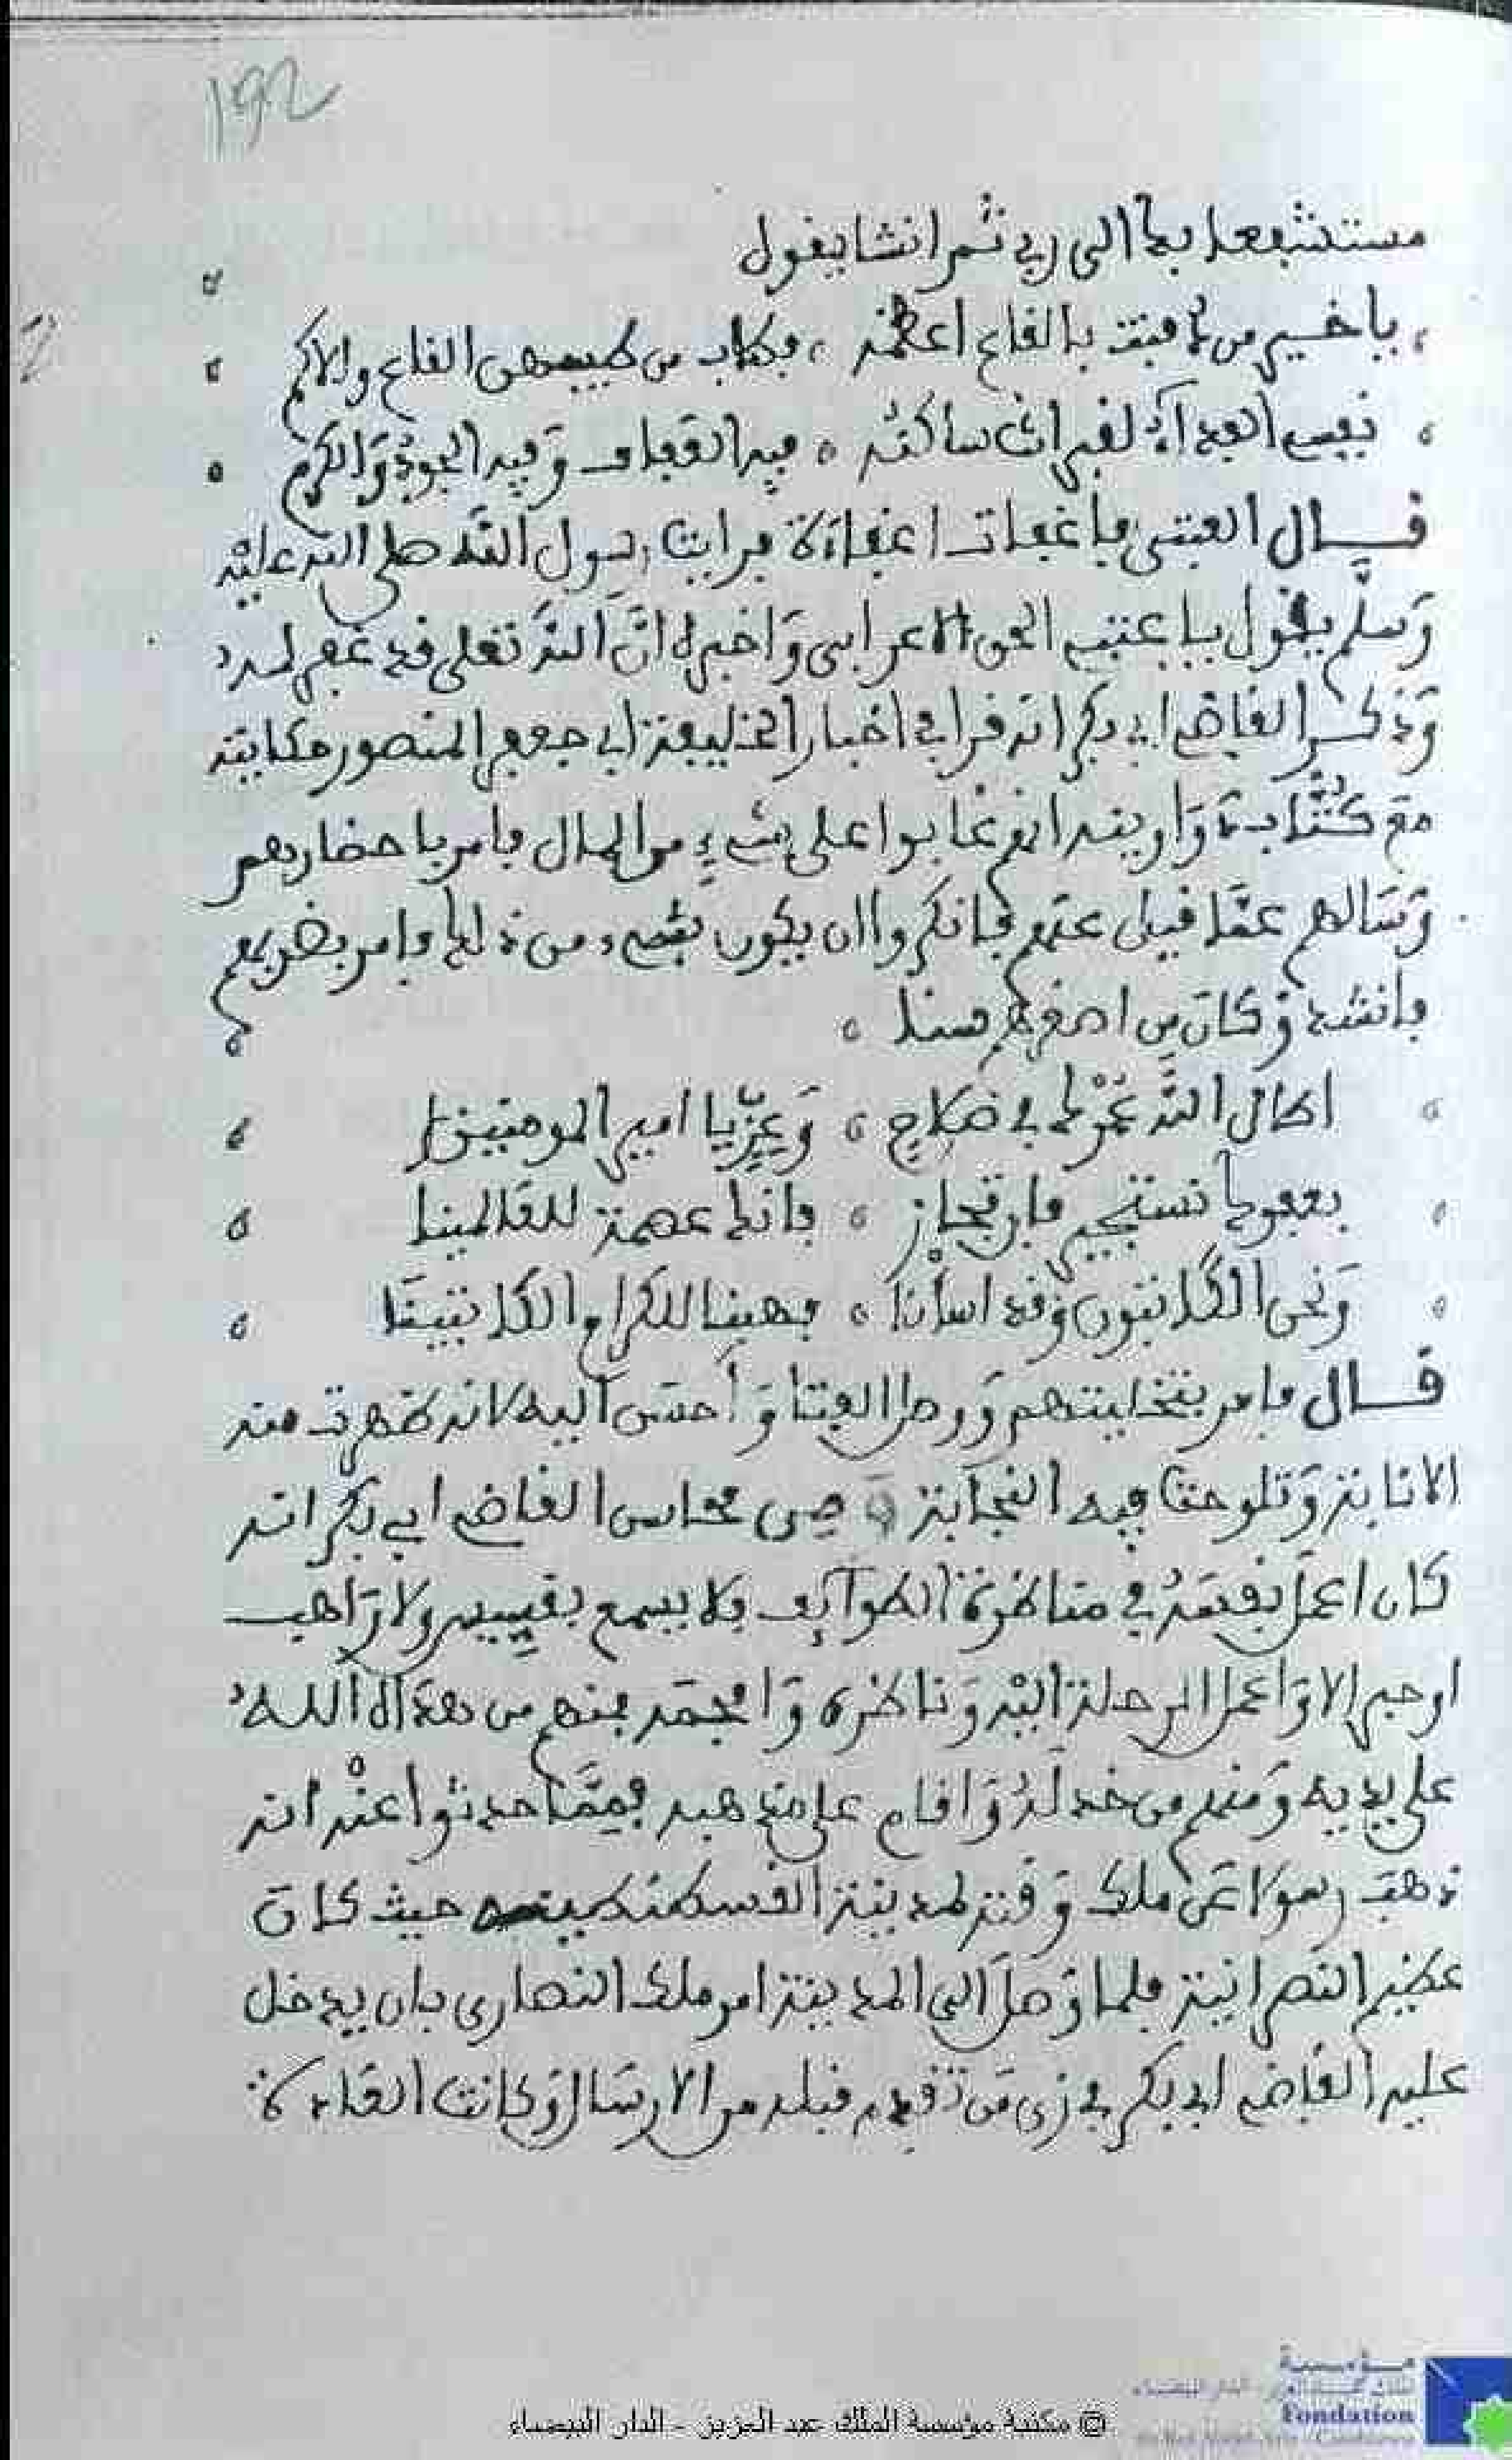 192
مستشفعا بك الى ربي ثم انشا يقول
يا خير من دفنت بالقاع اعظمه فطاب من طيبهن القاع والاكم
نفسي الفداء لقبر انت ساكنه فيه العفاف وفيه الجود والكرم
قال العتبي فاغفات اغفاءة فرايت رسول الله صلى الله عليه
وسلم يقول يا عتبي الحق الاعرابي واخبره ان الله تعلى قد غفر له
وذكر القاضي ابي بكر انه قرا في اخبار الخليفة ابي جعفر المنصور حكايته
مع كتاب دواوينه انهم غابوا على شيء من المال فامر باحضارهم
وسالهم عما قيل عنهم فانكروا ان يكون شيء من ذلك فامر بضربهم
فانشد وكان من اصغرهم سنا
اطال الله عمرك في صلاح وعز يا امير المومنينا
بعفوك نستجير فان تجاز فانك عصمة للعالمينا
ونحن الكاتبون وقد اسأنا فهبنا للكرام الكاتبينا
قال فامر بتخليتهم ووصل الفتا واحسن اليه لانه ظهرت منه
الانابة وتلوحت فيه النجابة فمن محاسن القاضي ابي بكر انه
كان اعمل نفسه في مناظرة الطوايف فلا يسمع بقسيس ولا راهب
او حبر الا واعمل الرحلة اليه وناظره وافحمه فمنهم من هداه الله
على يديه ومنهم من خذله واقام على مذهبه فمما حدثوا عنه انه
ذهب رسولا عن ملك وقته لمدينة القسطنطينية حيث كان
عظيم النصرانية فلما وصل الى المدينة امر ملك النصارى بان يدخل
عليه القاضي ابي بكر في زي من تقدم قبله من الارسال وكانت العادة
مؤسسة
Fondation
© مكتبة مؤسسة الملك عبد العزيز - الدار البيضاء